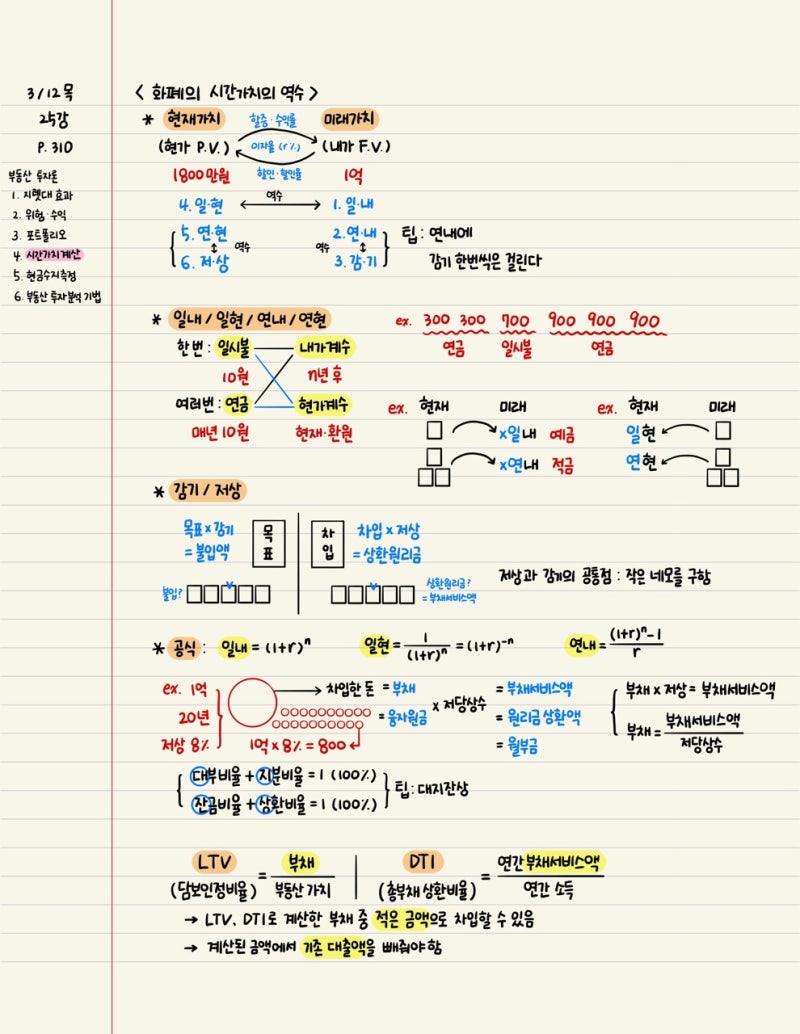 3/12 목
25강
P. 310
부동산 투자론
1. 지렛대 효과
2. 위험·수익
3. 포트폴리오
4. 시간가치계산
5. 현금수지측정
6. 부동산 투자분석 기법
< 화폐의 시간가치의 역수 >
* 현재가치 할증·수익률 미래가치
(현가 P.V.) 이자율 (r%) (내가 F.V.)
1800만원 할인·할인율 1억
4. 일·현 역수 1. 일·내
5. 연·현 2. 연·내 팁 : 연내에
역수 역수
6. 저·상 3. 감·기 감기 한번씩은 걸린다
* 일내 / 일현 / 연내 / 연현 ex. 300 300 700 900 900 900
연금 일시불 연금
한번 : 일시불 내가계수
10원 n년 후
여러번 : 연금 현가계수
매년 10원 현재·환원
ex. 현재 미래 ex. 현재 미래
x일내 예금 일현
x연내 적금 연현
* 감기 / 저상
목표 x 감기 목표 차입 차입 x 저상
= 불입액 = 상환원리금
불입? 상환원리금?
= 부채서비스액
저상과 감기의 공통점 : 작은 네모를 구함
* 공식 : 일내 = (1+r)ⁿ 일현 = 1/(1+r)ⁿ = (1+r)⁻ⁿ 연내 = (1+r)ⁿ-1/r
ex. 1억 차입한 돈 = 부채 = 부채서비스액 부채 x 저상 = 부채서비스액
20년 = 융자원금 x 저당상수 = 원리금 상환액 부채 = 부채서비스액/저당상수
저상 8% 1억 x 8% = 800 = 월부금
대부비율 + 지분비율 = 1 (100%)
팁 : 대지잔상
잔금비율 + 상환비율 = 1 (100%)
LTV = 부채 DTI = 연간 부채서비스액
(담보인정비율) 부동산 가치 (총부채 상환비율) 연간 소득
→ LTV, DTI로 계산한 부채 중 적은 금액으로 차입할 수 있음
→ 계산된 금액에서 기존 대출액을 빼줘야 함